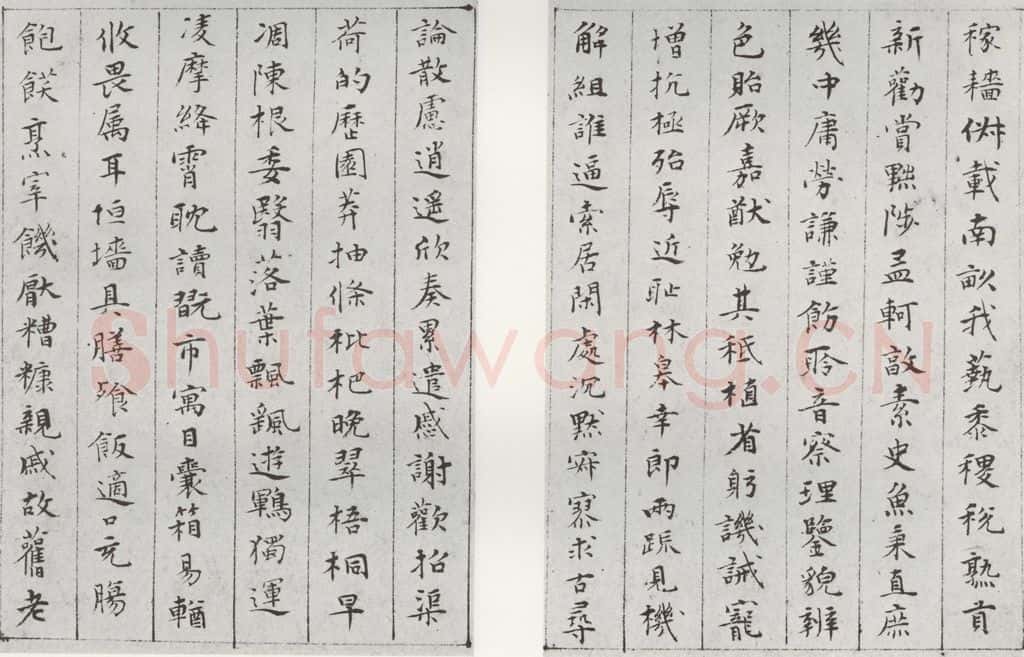 稼穡俶載南畝我藝黍稷稅熟貢
新勸賞黜陟孟軻敦素史魚秉直庶
幾中庸勞謙謹勅聆音察理鑒貌辨
色貽厥嘉猷勉其祗植省躬譏誡寵
增抗極殆辱近耻林皋幸即兩疏見機
解組誰逼索居閑處沉默寂寥求古尋
論散慮逍遙欣奏累遣慼謝歡招渠
荷的歷園莽抽條枇杷晚翠梧桐早
凋陳根委翳落葉飄颻遊鵾獨運
凌摩絳霄耽讀翫市寓目囊箱易輶
攸畏属耳垣墻具膳飡飯適口充腸
飽飫烹宰饑厭糟糠親戚故舊老
Shufawang.CN